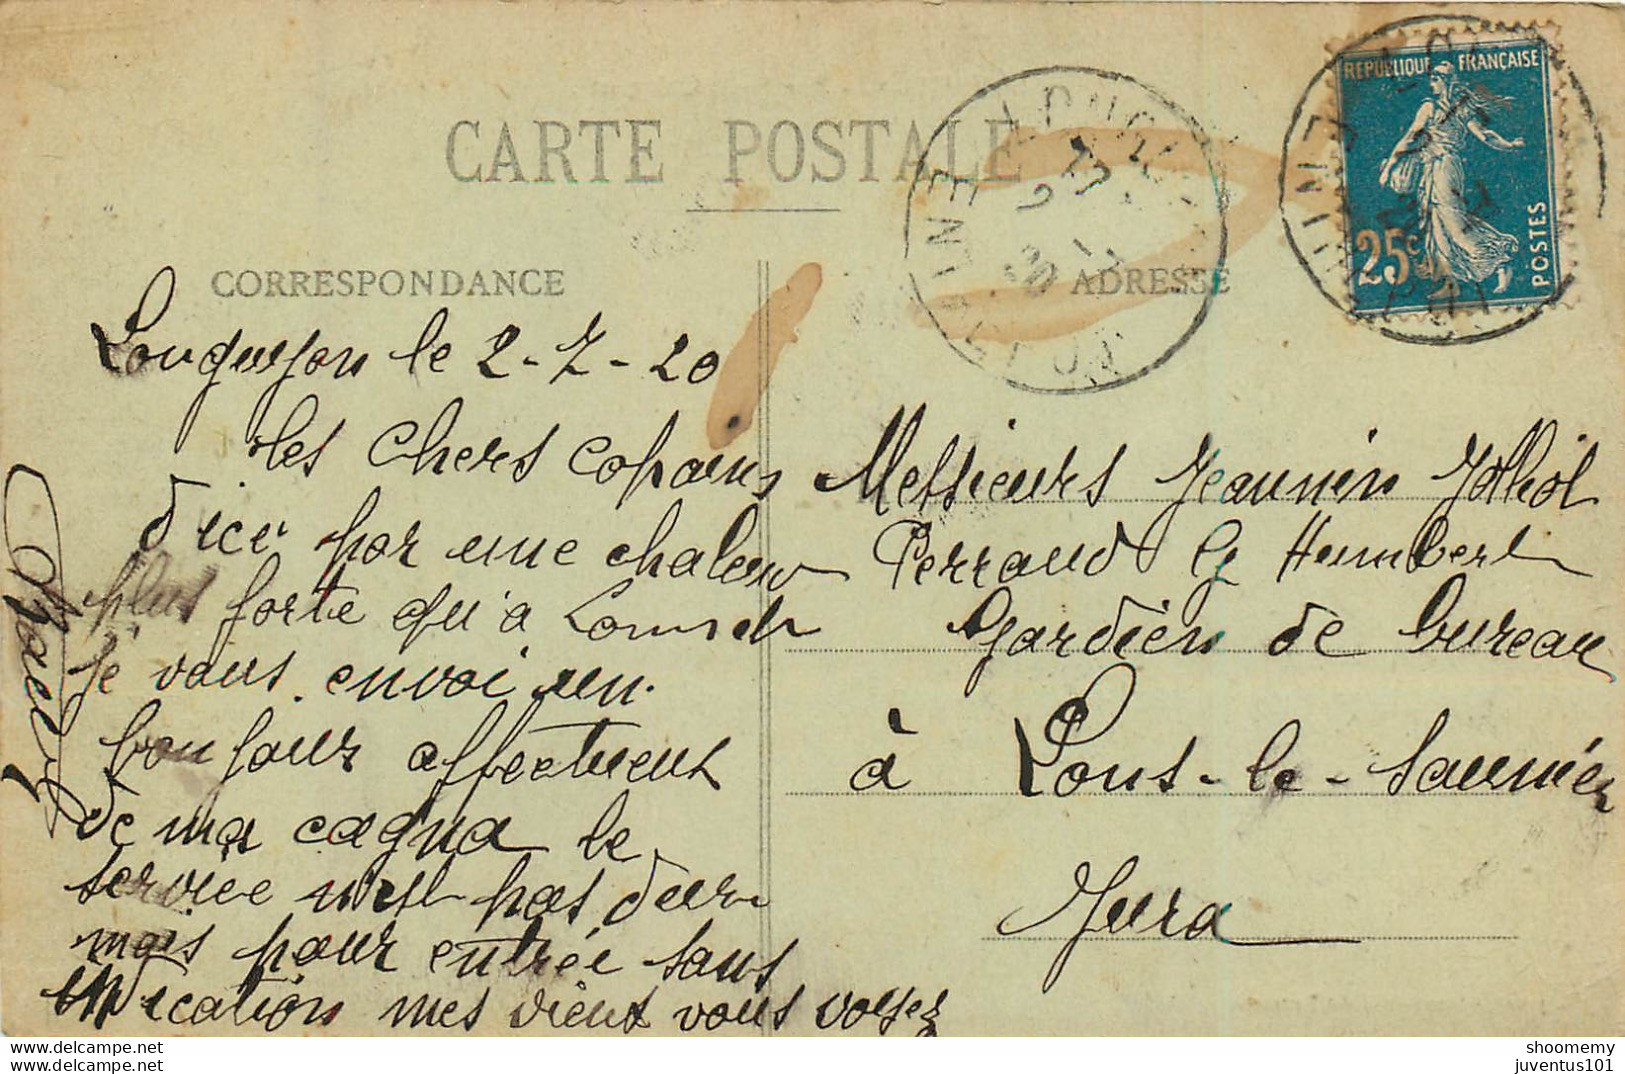 CARTE POSTALE
CORRESPONDANCE
ADRESSE
REPUBLIQUE FRANÇAISE
25c
POSTES
Longuyon le 2-7-20
les chers copains
d'ici par une chaleur
plus forte qu'a
je vous envoi un
bonjour affectueux
de ma cagna le
service n'est pas dur
mais pour entrée sans
indication mes vieux vous voyez
Messieurs Jeannin
Perraud & Humbert
Gardien de bureau
à Lons-le-Saunier
Jura
shoomemy
juventus101